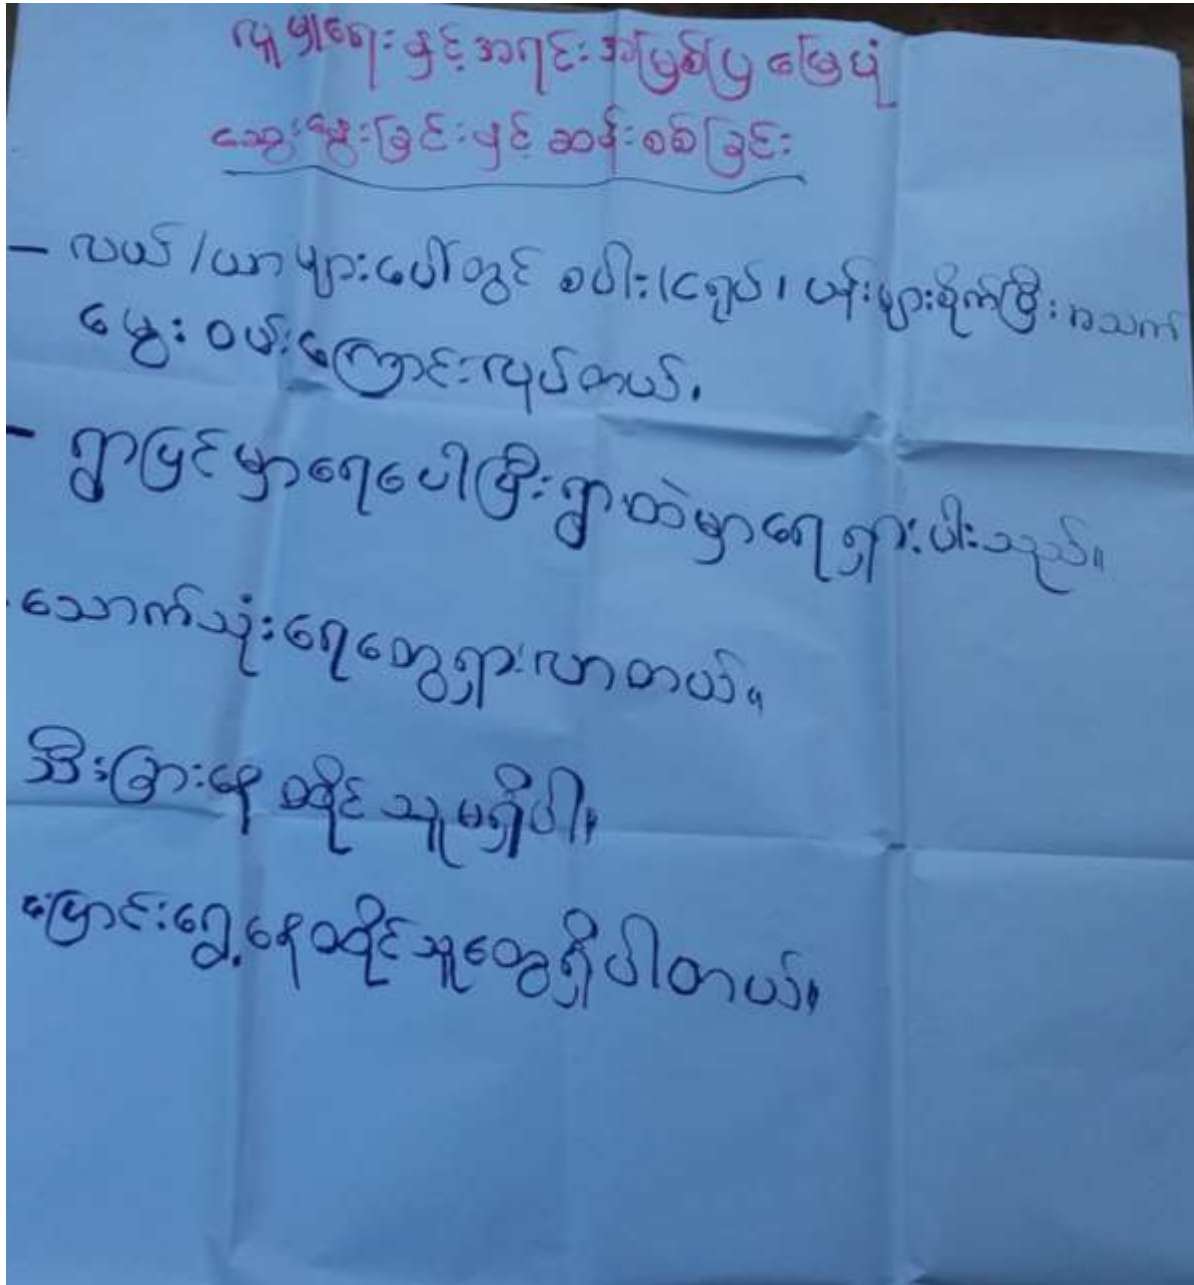 လူမှုရေးနှင့်အရင်းအမြစ်ပြ မြေပုံ
ဆွေးနွေးခြင်းနှင့် ဆန်းစစ်ခြင်း
- လယ်/ယာများပေါ်တွင် စပါး၊ငရုပ်၊ ပန်းများစိုက်ပြီး အသက်
မွေး ဝမ်းကြောင်းလုပ်တယ်။
- ရွာပြင်မှာရေပေါပြီး ရွာထဲမှာရေရှားပါးသည်။
သောက်သုံးရေတွေရှားလာတယ်။
သီးခြားနေ ထိုင်သူမရှိပါ။
ပြောင်းရွှေ့နေထိုင်သူတွေရှိပါတယ်။